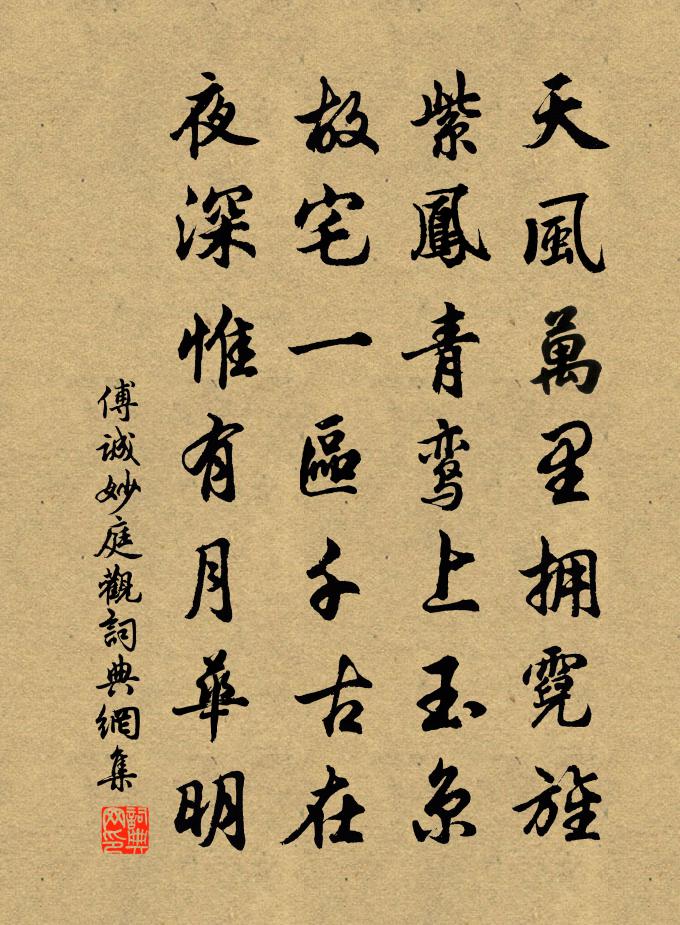 天風萬里拥霓旌
紫鳳青鸾上玉京
故宅一區千古在
夜深惟有月華明
傅诚妙庭觀詞典網集
詞典网印